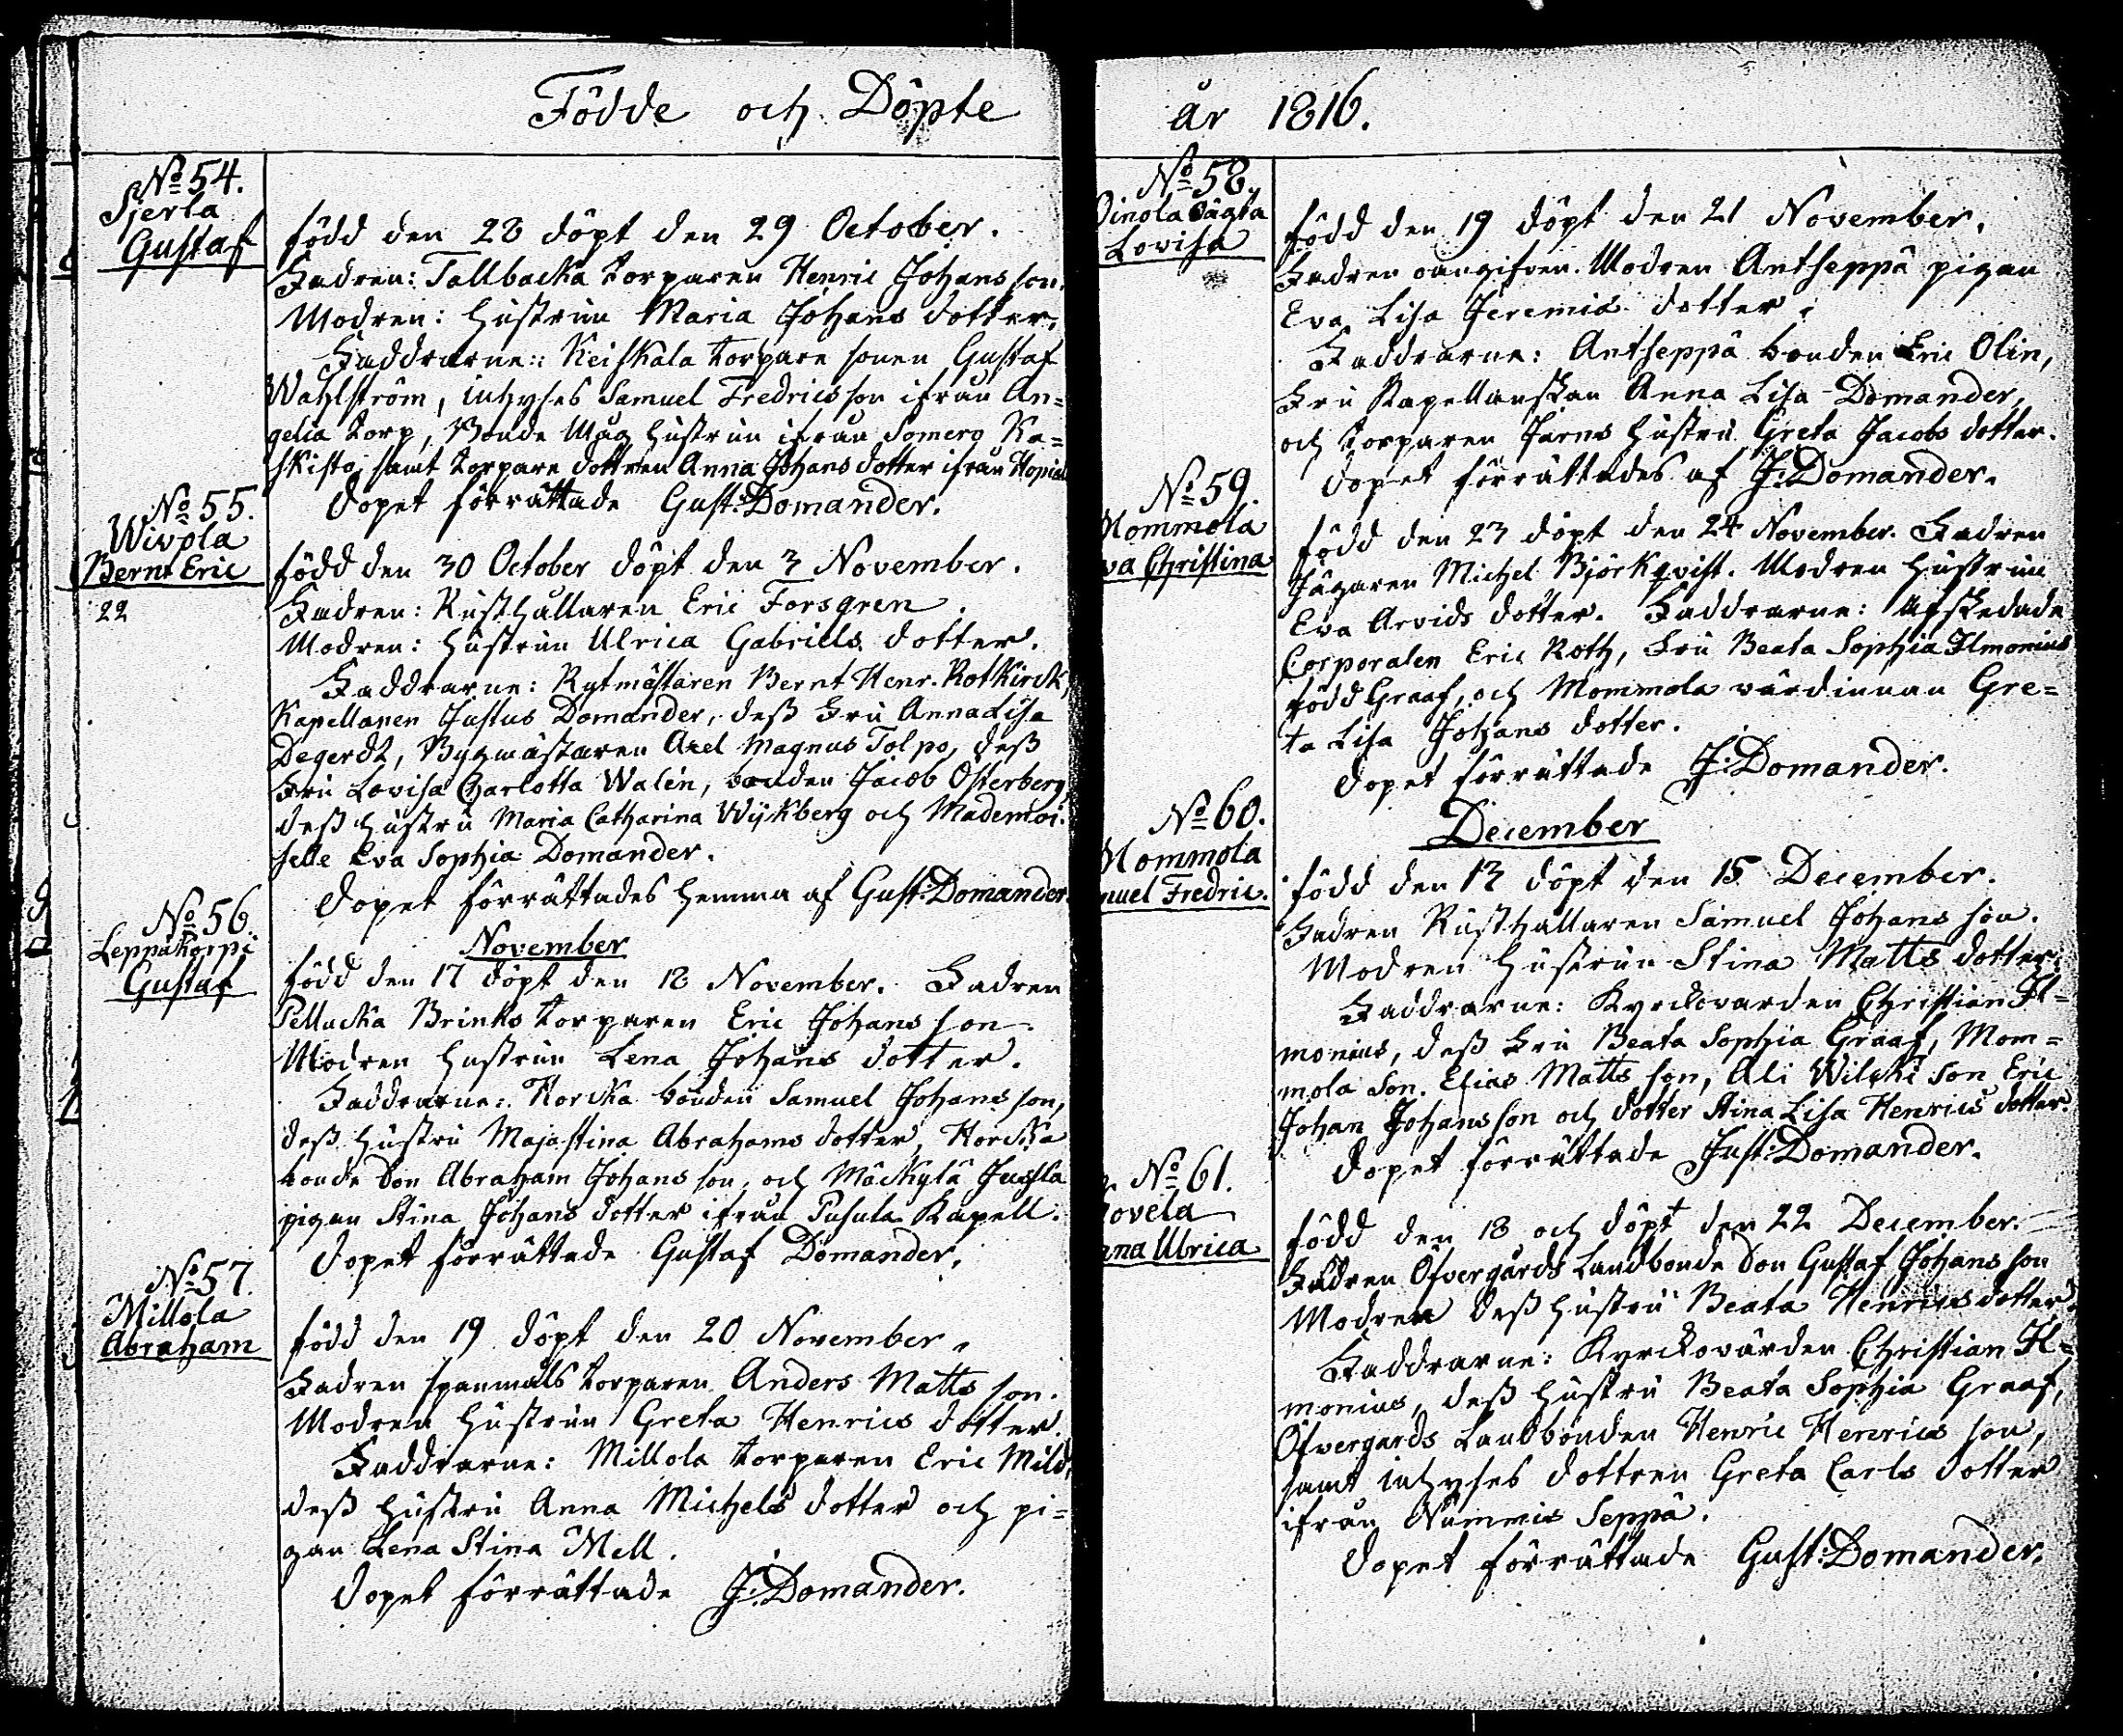 Födde och Döpte
år 1816.
No 54.
Sjerla
Gustaf
född den 28 döpt den 29 October.
Fadren: Tallbacka torparen Henric Johans son.
Modren: hustrun Maria Johans dotter.
Faddrarne: Keiskala torpare sonen Gustaf
Wahlström, inhyses Samuel Fredrics son ifrån An=
gelia torp, Bonde Måg hustrun ifrån Somero Ka=
skisto, samt torpare dottren Anna Johans dotter ifrån
dopet förrättade Gust: Domander.
No 55.
Wivola
Bernt Eric
22
född den 30 October döpt den 3 November.
Fadren: Rusthållaren Eric Forsgren.
Modren: hustrun Ulrica Gabriells dotter.
Faddrarne: Rytmästaren Bernt Henr. Rotkirck,
Kapellanen Justus Domander, dess Fru Anna Lisa
Degerdt, Bygmästaren Axel Magnus Tolpo, dess
Fru Lovisa Charlotta Walén, bonden Jacob Österberg
dess hustru Maria Catharina Wykberg och Mademoi=
selle Eva Sophia Domander.
dopet förrättades hemma af Gust: Domander.
No 56.
Leppäkorpi
Gustaf
November
född den 17 döpt den 18 November. Fadren
Pellacka Brinks torparen Eric Johans son.
Modren hustrun Lena Johans dotter.
Faddrarne: Horcka bonden Samuel Johans son,
dess hustru Majastina Abrahams dotter, Horcka
bonde Son Abraham Johans son, och Mäckylä Jussla
pigan Stina Johans dotter ifrån Pusula Kapell.
dopet förrättade Gustaf Domander.
No 57.
Millola
Abraham
född den 19 döpt den 20 November.
Fadren spanmåls torparen Anders Matts son.
Modren hustrun Greta Henrics dotter.
Faddrarne: Millola torparen Eric Mild,
dess hustru Anna Michels dotter och pi=
gan Lena Stina Mell.
dopet förrättade J: Domander.
No 58.
Oinola
Lovisa
född den 19 döpt den 21 November.
Fadren oangifven. Modren Antseppä pigan
Eva Lisa Jeremia dotter.
Faddrarne: Antseppä bonden Eric Olin,
Fru Kapellanskan Anna Lisa Domander,
och torparen Jerns hustru Greta Jacobs dotter.
dopet förrättades af J: Domander.
No 59.
Mommola
va Christina
född den 23 döpt den 24 November. Fadren
Jägaren Michel Björkqvist. Modren hustrun
Eva Arvids dotter. Faddrarne: Afskedade
Corporalen Eric Roth, Fru Beata Sophia Ilmonius
född Graaf, och Mommola värdinnan Gre=
ta Lisa Johans dotter.
dopet förrättade J: Domander.
No 60.
Mommola
muel Fredric.
December
född den 13 döpt den 15 December.
Fadren Rusthållaren Samuel Johans son.
Modren hustrun Stina Matts dotter.
Faddrarne: Kyrckovärden Christian Il=
monius, dess Fru Beata Sophia Graaf, Mom=
mola Son. Elias Matts son, Ali Wilcki Son Eric
Johan Johans son och dotter Stina Lisa Henrics dotter.
dopet förrättade Just: Domander.
No 61.
ovela
nna Ulrica
född den 18 och döpt den 22 December.
Fadren Öfvergårds Landbonde Son Gustaf Johans son
Modren dess hustru Beata Henrics dotter.
Faddrarne: Kyrckovärden Christian Il=
monius, dess hustru Beata Sophia Graaf,
Öfvergårds Landbonden Henric Henrics son,
samt inhyses dottren Greta Carls dotter
ifrån Nummis Seppä.
dopet förrättade Gust: Domander.